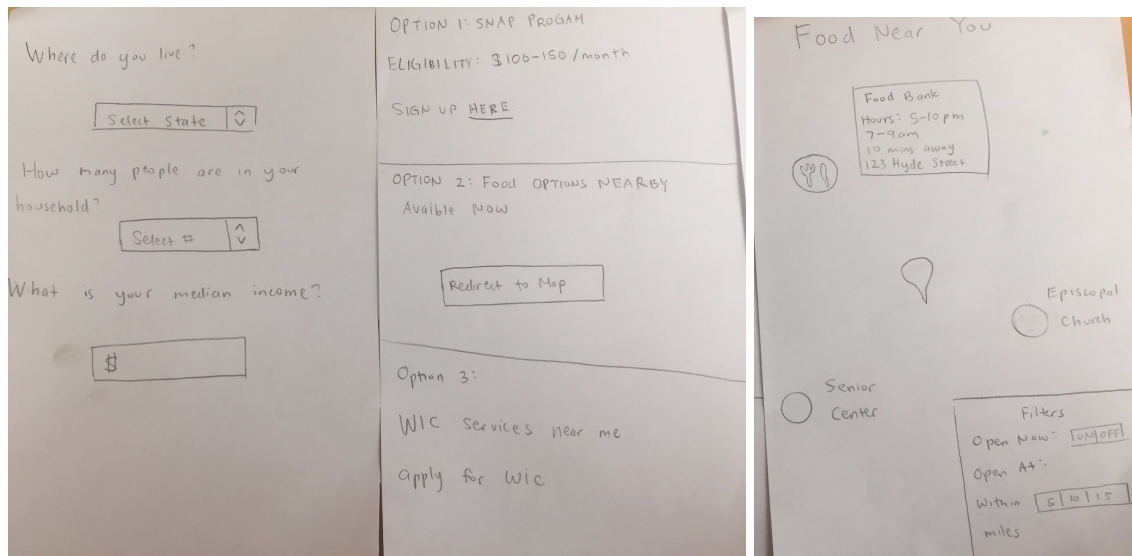 Where do you live?
Select State
How many people are in your
household?
Select #
What is your median income?
$
OPTION 1: SNAP PROGAM
ELIGIBILITY: $100-150/month
SIGN UP HERE
OPTION 2: Food OPTIONS NEARBY
Avaible Now
Redirect to Map
Option 3:
WIC services near me
apply for WIC
Food Near You
Food Bank
Hours: 5-10pm
7-9am
10 mins away
123 Hyde Street
Episcopal
Church
Senior
Center
Filters
Open Now: ON|OFF
Open At:
Within 5|10|15
miles